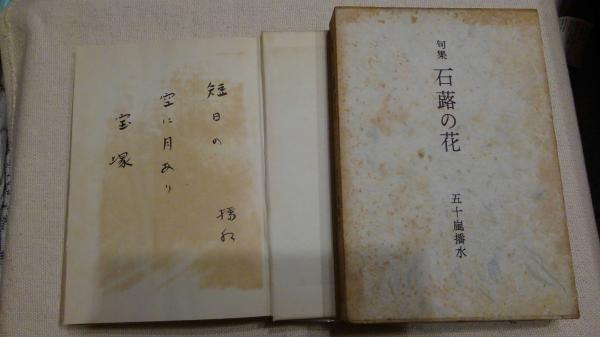 句集
石蕗の花
五十嵐播水
短日の
空に月あり
宝塚
播水